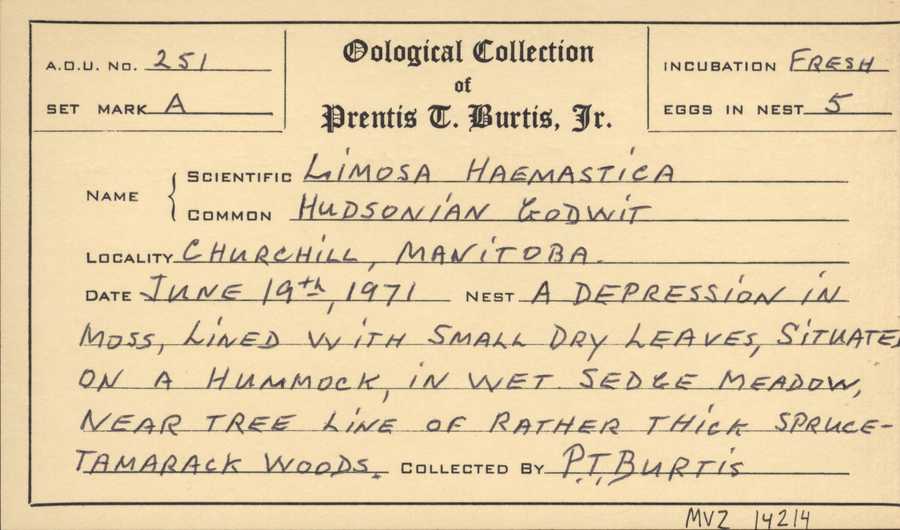 A.O.U. No. 251
SET MARK A
Oological Collection
of
Prentis T. Burtis, Jr.
INCUBATION FRESH
EGGS IN NEST 5
NAME
SCIENTIFIC LIMOSA HAEMASTICA
COMMON HUDSONIAN GODWIT
LOCALITY CHURCHILL, MANITOBA.
DATE JUNE 19th, 1971 NEST A DEPRESSION IN
MOSS, LINED WITH SMALL DRY LEAVES, SITUATED
ON A HUMMOCK, IN WET SEDGE MEADOW,
NEAR TREE LINE OF RATHER THICK SPRUCE-
TAMARACK WOODS. COLLECTED BY P.T. BURTIS
MVZ 14214